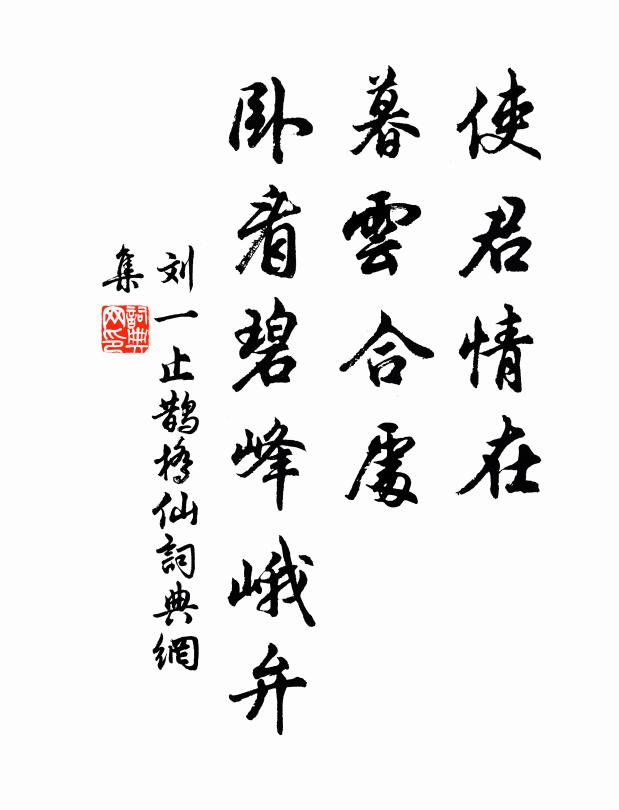 使君情在
暮雲合處
卧看碧峰峨弁
刘一止鹊橋仙詞典網
集
詞典
网印